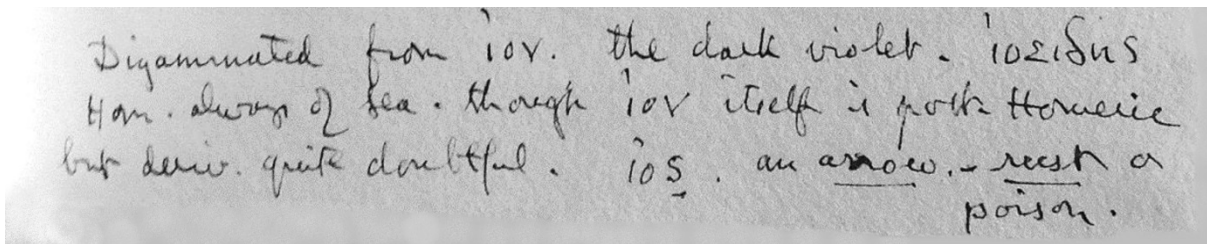 Digammated from ἰον. the dark violet. ἰοειδης
Hom. always of sea. though ἰον itself is post Homeric
but deriv. quite doubtful. ἰος. an arrow. - rust or
poison.